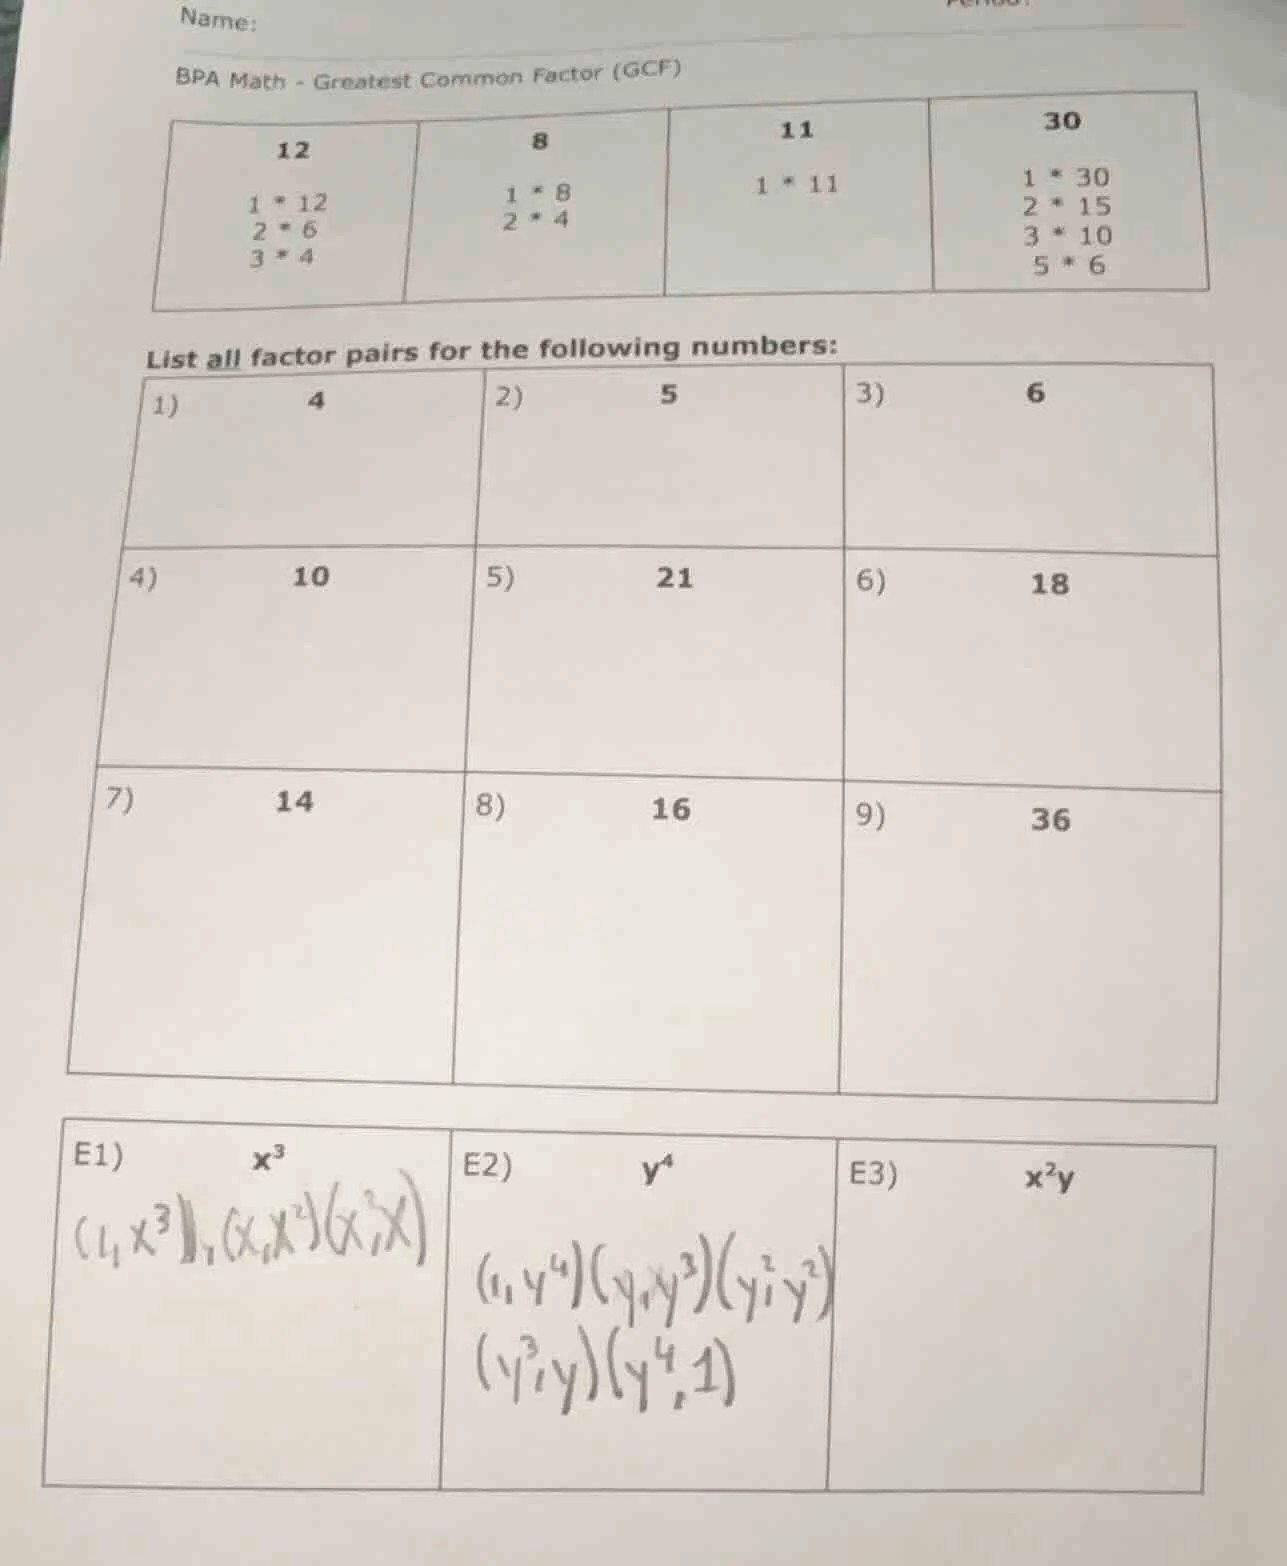 Name:
BPA Math - Greatest Common Factor (GCF)
12
1 * 12
2 * 6
3 * 4
8
1 * 8
2 * 4
11
1 * 11
30
1 * 30
2 * 15
3 * 10
5 * 6
List all factor pairs for the following numbers:
1) 4
2) 5
3) 6
4) 10
5) 21
6) 18
7) 14
8) 16
9) 36
E1) x³
(1,x³),(x,x²)(x²,x)
E2) y⁴
(1,y⁴)(y,y³)(y²,y²)
(y³,y)(y⁴,1)
E3) x²y